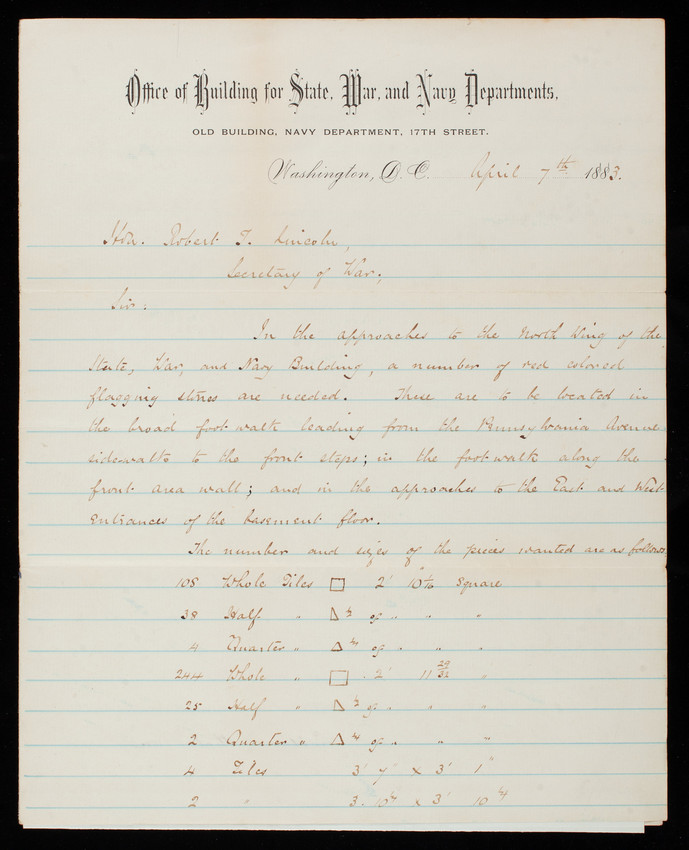 Office of Building for State, War, and Navy Departments,
OLD BUILDING, NAVY DEPARTMENT, 17TH STREET.
Washington, D. C. April 7th 1883.
Hon. Robert T. Lincoln,
Secretary of War,
Sir:
In the approaches to the North Wing of the
State, War, and Navy Building, a number of red colored
flagging stones are needed. These are to be located in
the broad foot walk leading from the Pennsylvania Avenue
sidewalk to the front steps; in the foot walk along the
front area wall; and in the approaches to the East and West
Entrances of the basement floor.
The number and sizes of the pieces wanted are as follows
108 Whole Tiles □ 2' 10" Square
38 Half " 1/2 of " " "
4 Quarter " 1/4 of " " "
244 Whole " □ 2' 11 29/32 "
25 Half " 1/2 of " " "
2 Quarter " 1/4 of " " "
4 Tiles 3' 7" x 3' 1"
2 " 3' 10 x 3' 10 1/4